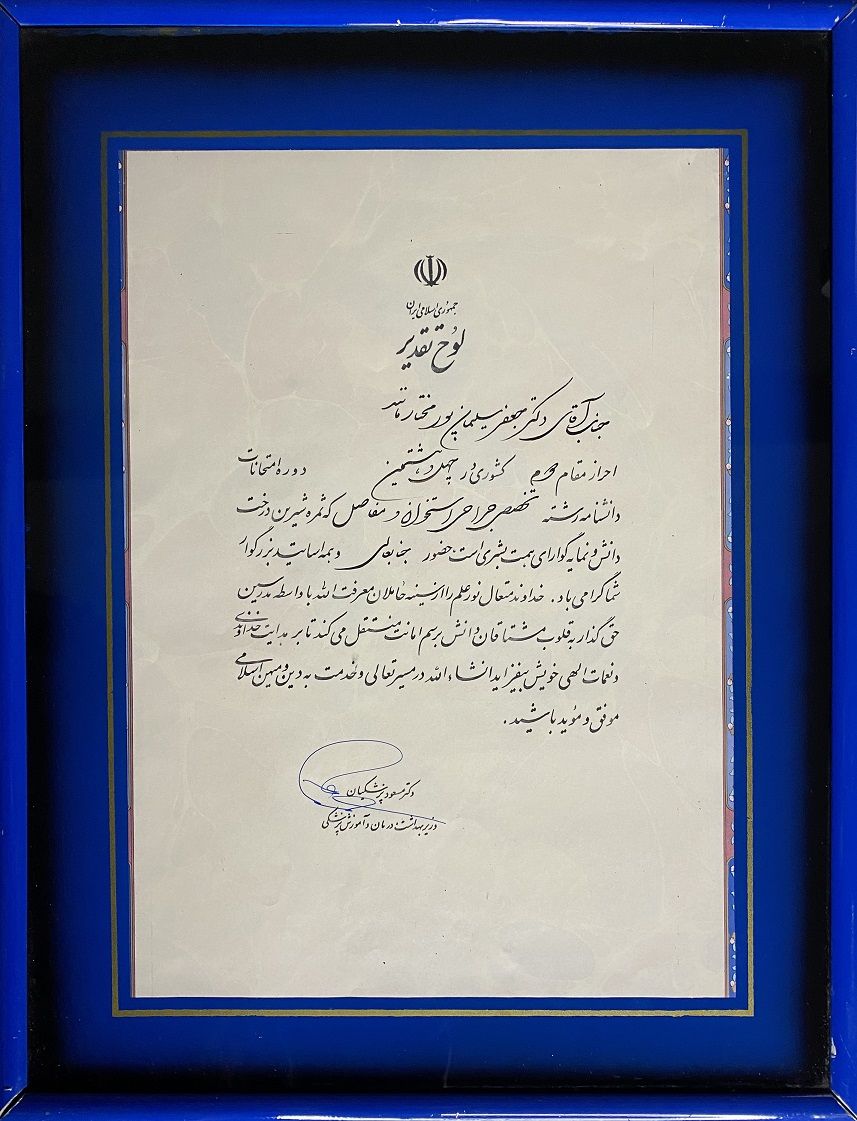 جمهوری اسلامی ایران
لوح تقدیر
جناب آقای دکتر جعفر سلیمان پور مختارمانند
احراز مقام دوم کشوری در چهل و هشتمین دوره امتحانات
دانشنامه رشته تخصصی جراحی استخوان و مفاصل که ثمره شیرین درخت
دانش و نمایه گوارای همت بشری است حضور جنابعالی و همه اساتید بزرگوار
شما گرامی باد. خداوند متعال نور علم را از سینه حاملان معرفت الله با واسطه مدرسین
حق گذار به قلوب مشتاقان دانش برسم امانت منتقل می کند تا بر هدایت خداوندی
و نعمات الهی خویش بیفزاید انشاءالله در مسیر تعالی و خدمت به دین و میهن اسلامی
موفق و مؤید باشید.
دکتر مسعود پزشکیان
وزیر بهداشت، درمان و آموزش پزشکی